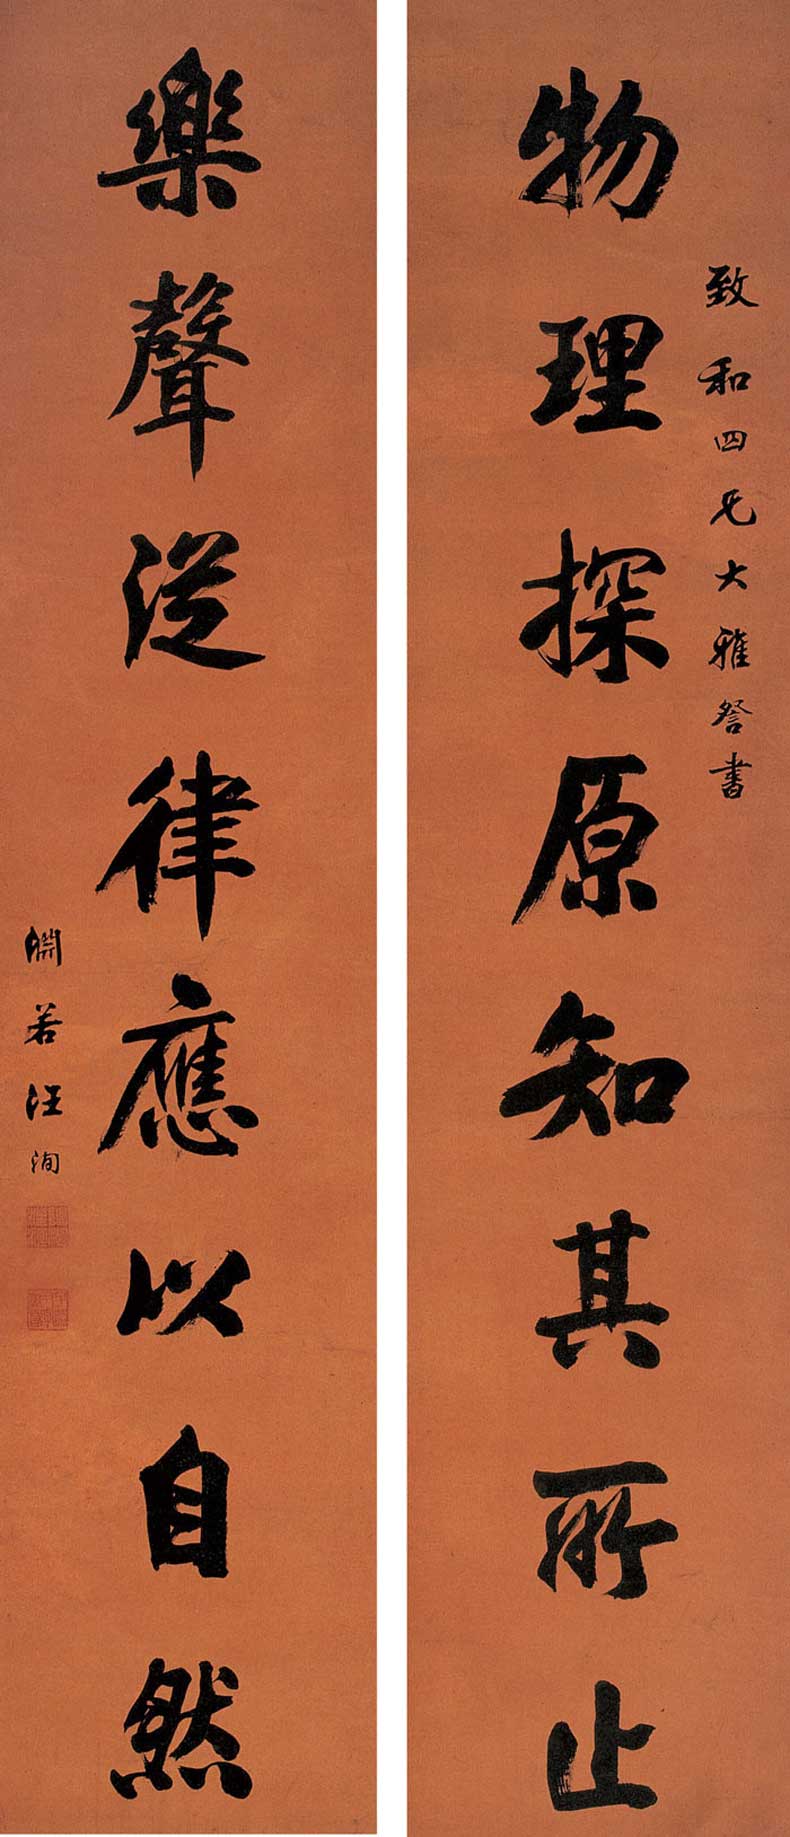 致和四兄大雅詧書
物理探原知其所止
樂聲從律應以自然
淵若汪洵